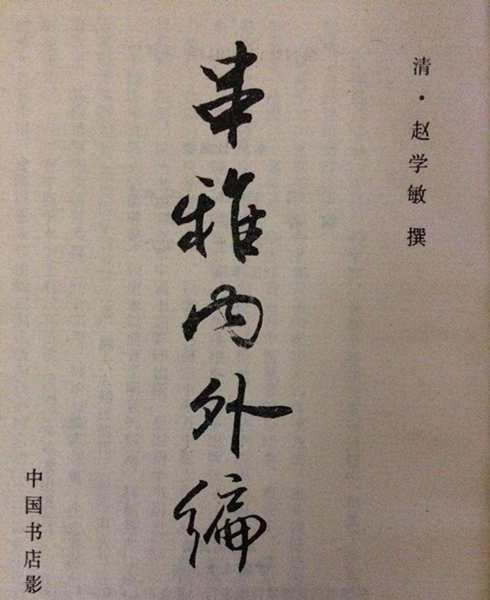 清·赵学敏 撰
串雅内外编
中国书店影